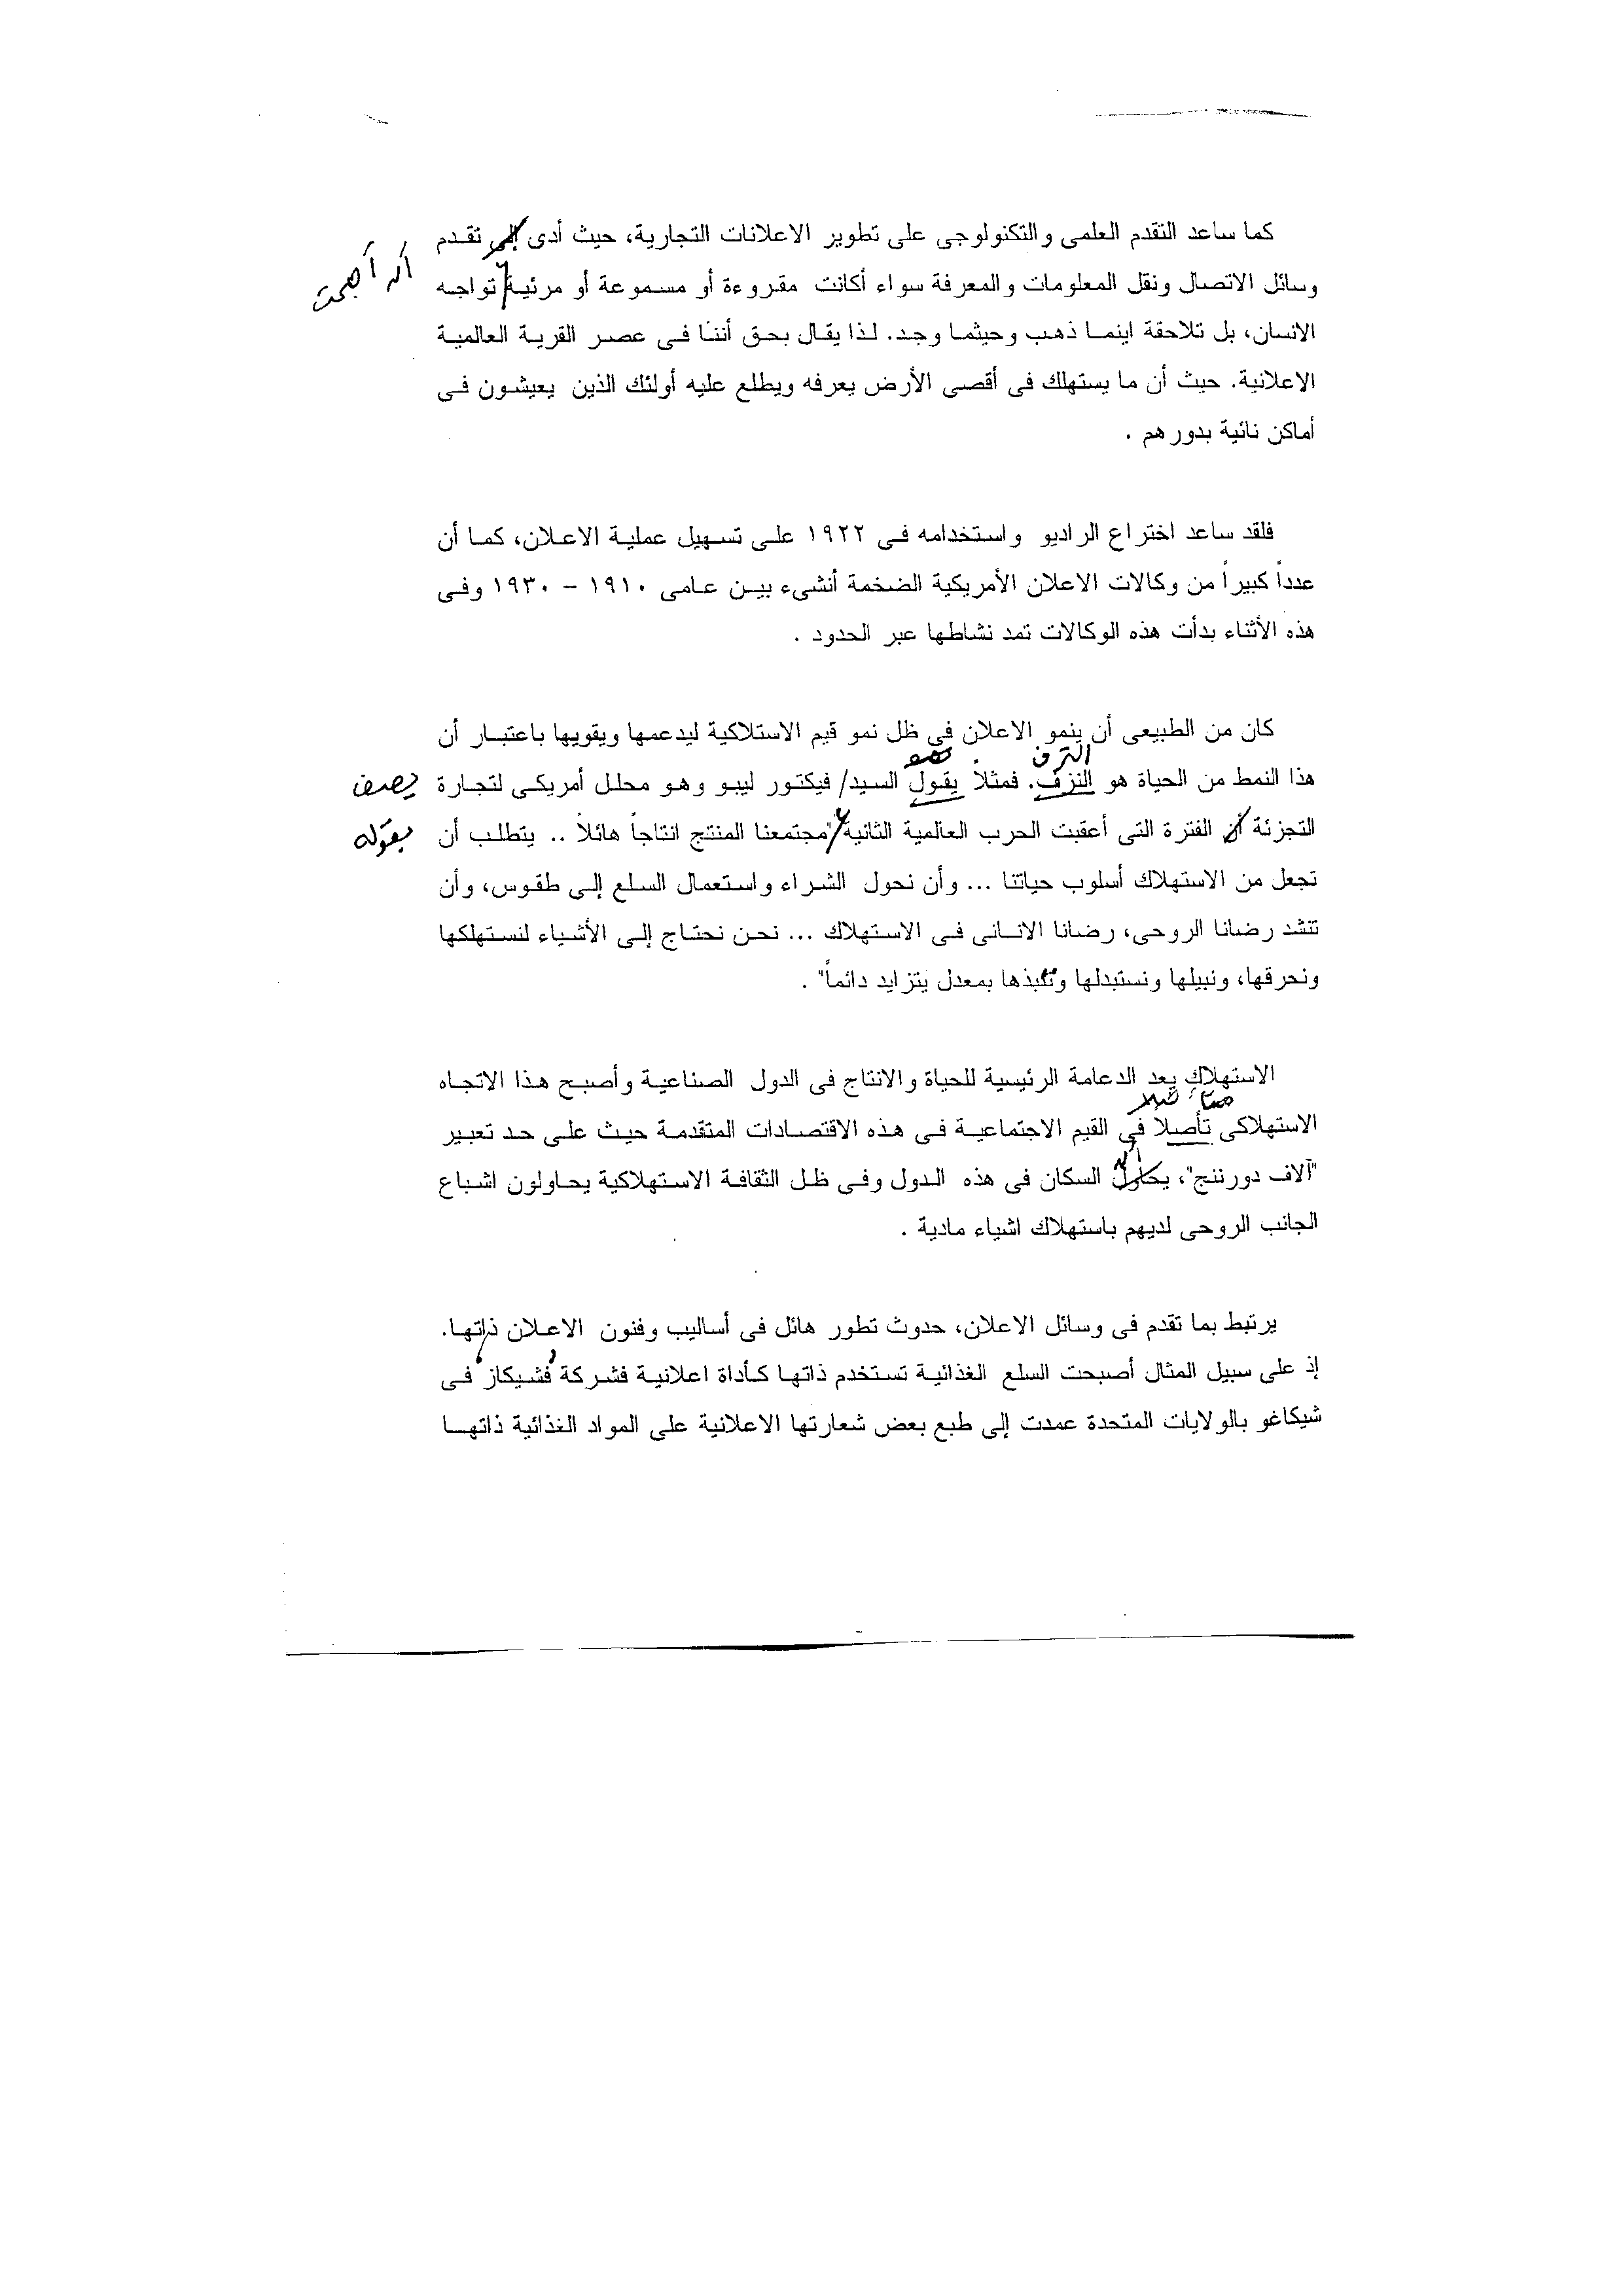 كما ساعد التقدم العلمى والتكنولوجى على تطوير الاعلانات التجارية، حيث أدى إلى تقدم
أن أصبحت
وسائل الاتصال ونقل المعلومات والمعرفة سواء أكانت مقروءة أو مسموعة أو مرئية تواجه
الانسان، بل تلاحقة اينما ذهب وحيثما وجد. لذا يقال بحق أننا فى عصر القرية العالمية
الاعلانية. حيث أن ما يستهلك فى أقصى الأرض يعرفه ويطلع عليه أولئك الذين يعيشون فى
أماكن نائية بدورهم .
فلقد ساعد اختراع الراديو واستخدامه فى ١٩٢٢ على تسهيل عملية الاعلان، كما أن
عدداً كبيراً من وكالات الاعلان الأمريكية الضخمة أنشىء بين عامى ١٩١٠ – ١٩٣٠ وفى
هذه الأثناء بدأت هذه الوكالات تمد نشاطها عبر الحدود .
كان من الطبيعى أن ينمو الاعلان فى ظل نمو قيم الاستلاكية ليدعمها ويقويها باعتبار أن
الترف
هذا النمط من الحياة هو النزف. فمثلاً يقول السيد/ فيكتور ليبو وهو محلل أمريكى لتجارة
يصف
التجزئة أن الفترة التى أعقبت الحرب العالمية الثانية "مجتمعنا المنتج انتاجاً هائلاً .. يتطلب أن
بقوله
تجعل من الاستهلاك أسلوب حياتنا ... وأن نحول الشراء واستعمال السلع إلى طقوس، وأن
تنشد رضانا الروحى، رضانا الانانى فى الاستهلاك ... نحن نحتاج إلى الأشياء لنستهلكها
ونحرقها، ونبيلها ونستبدلها وننبذها بمعدل يتزايد دائماً" .
الاستهلاك يعد الدعامة الرئيسية للحياة والانتاج فى الدول الصناعية وأصبح هذا الاتجاه
الاستهلاكى تأصلا فى القيم الاجتماعية فى هذه الاقتصادات المتقدمة حيث على حد تعبير
"آلاف دورننج"، يحاول السكان فى هذه الدول وفى ظل الثقافة الاستهلاكية يحاولون اشباع
الجانب الروحى لديهم باستهلاك اشياء مادية .
يرتبط بما تقدم فى وسائل الاعلان، حدوث تطور هائل فى أساليب وفنون الاعلان ذاتها.
إذ على سبيل المثال أصبحت السلع الغذائية تستخدم ذاتها كأداة اعلانية فشركة فشيكاز فى
شيكاغو بالولايات المتحدة عمدت إلى طبع بعض شعارتها الاعلانية على المواد الغذائية ذاتها